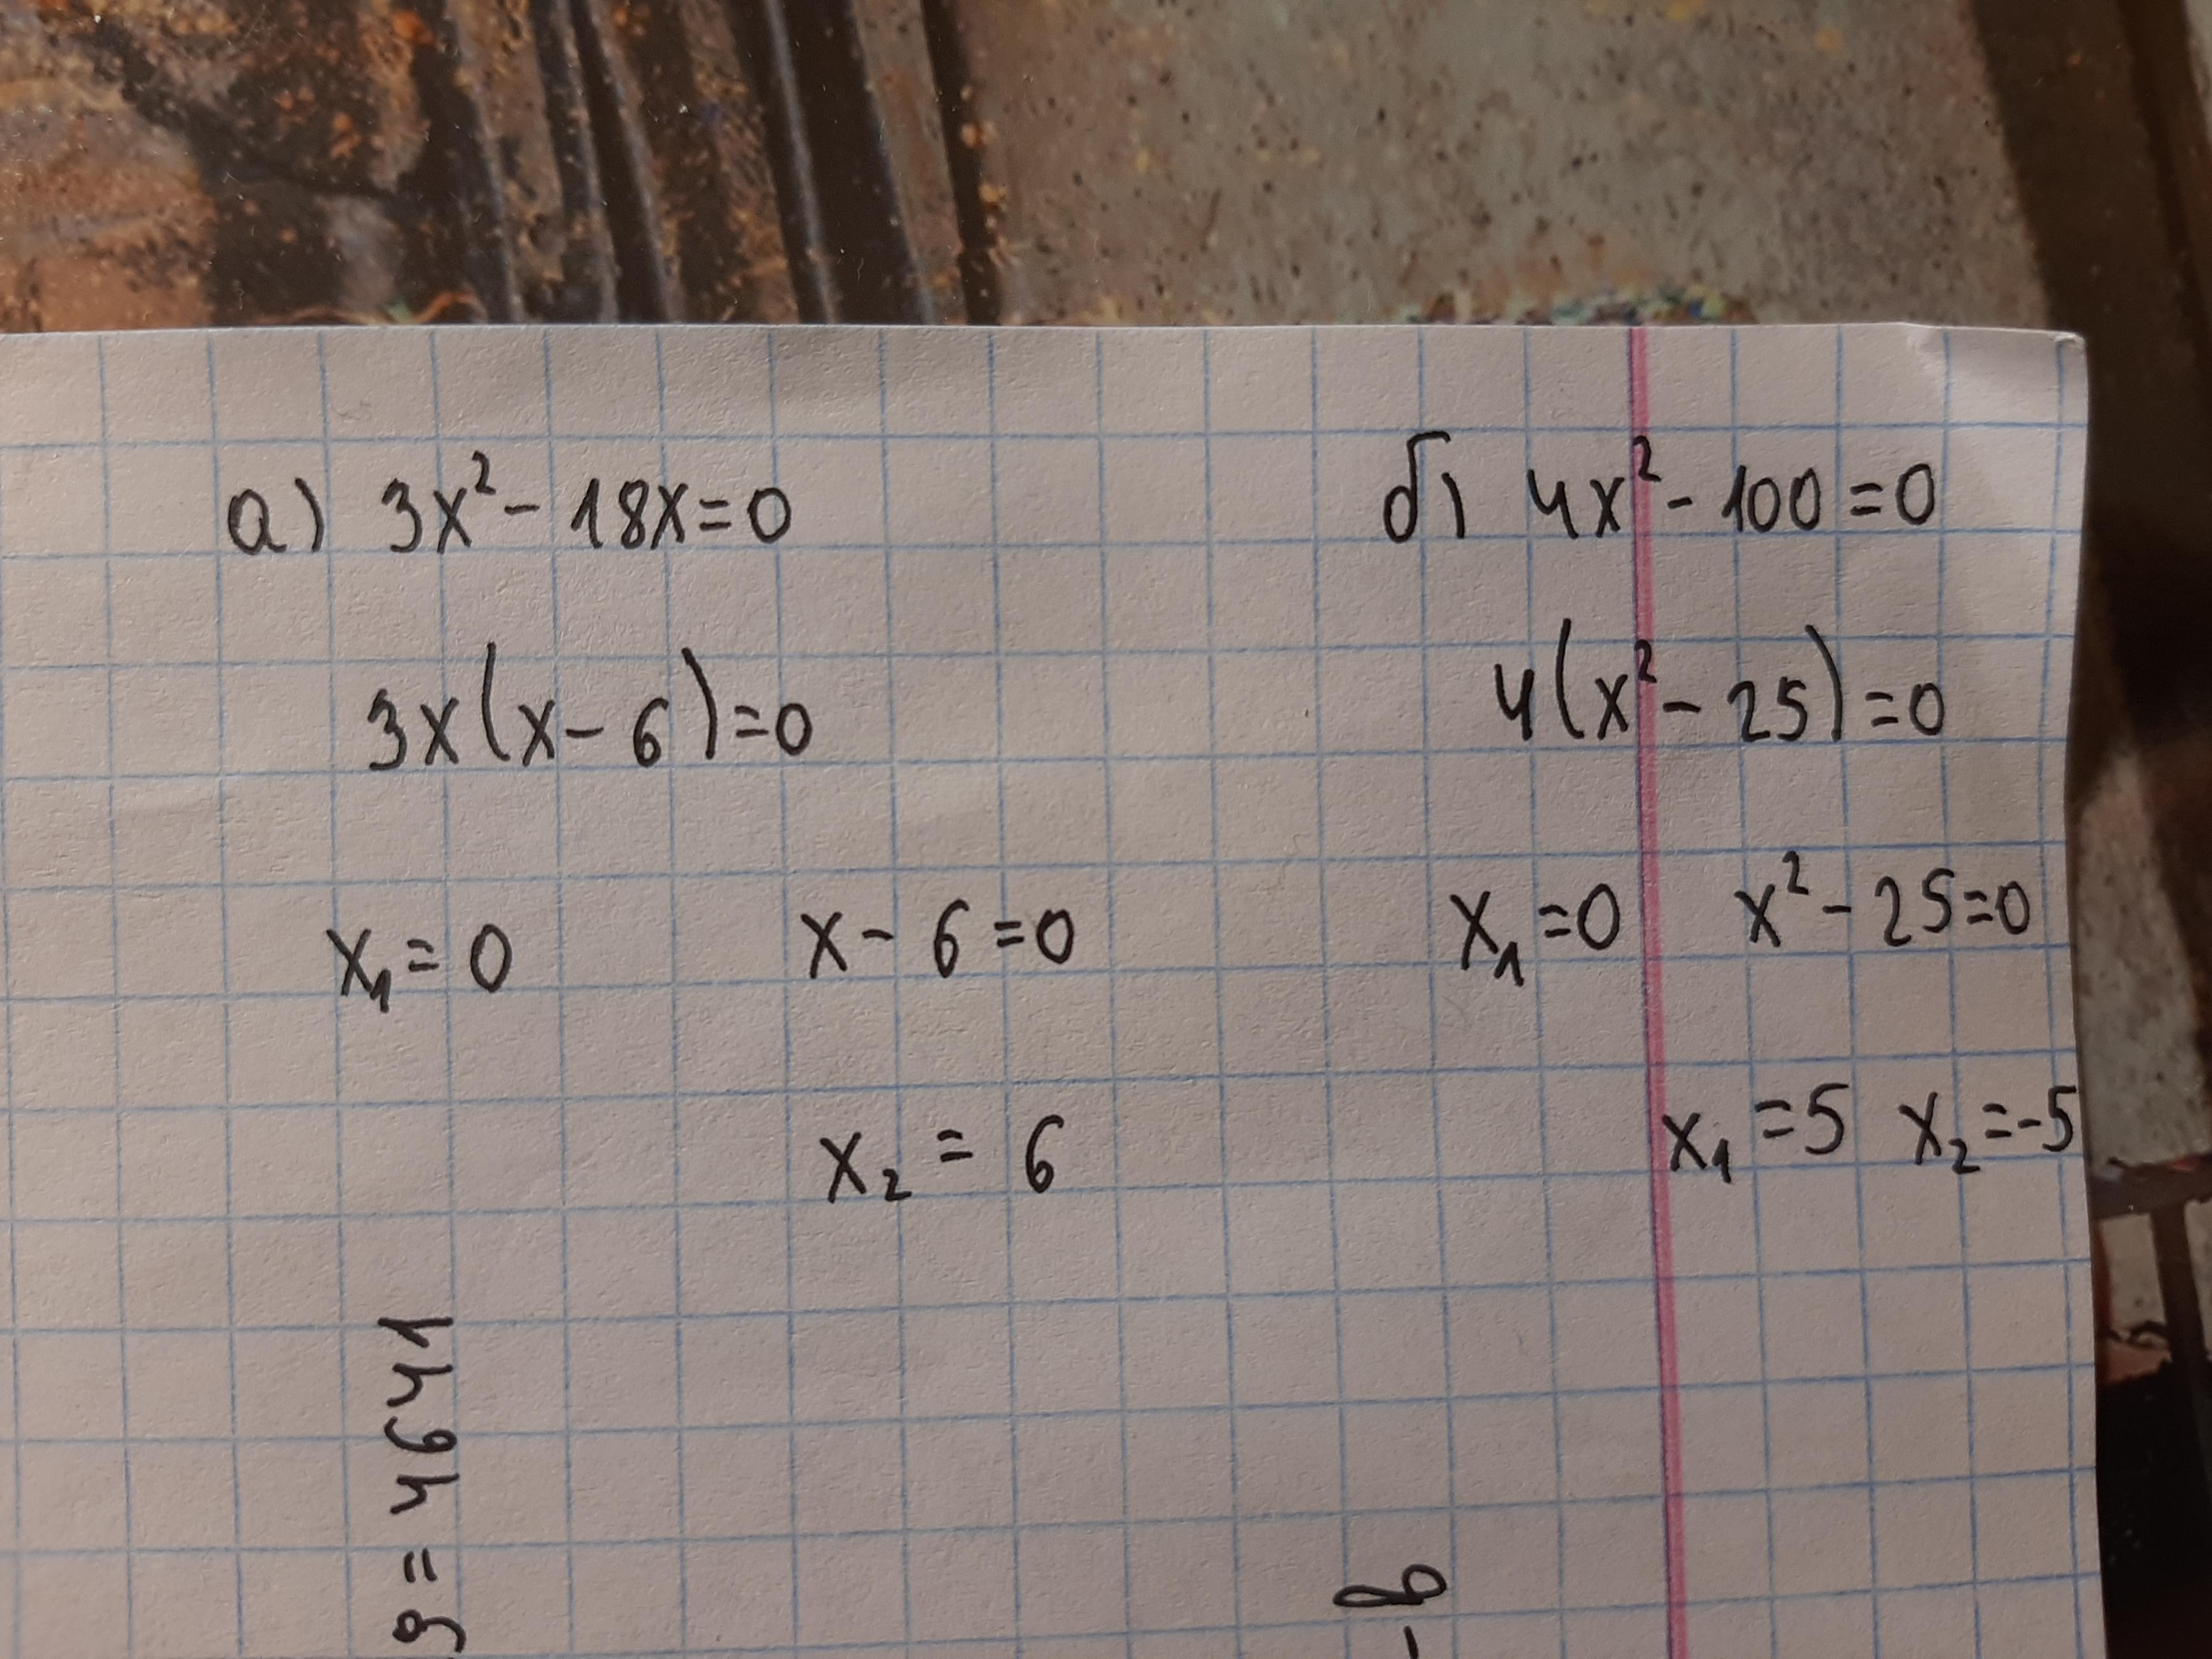 а) 3x² - 18x = 0
3x(x - 6) = 0
x₁ = 0 x - 6 = 0
x₂ = 6
б) 4x² - 100 = 0
4(x² - 25) = 0
x₁ = 0 x² - 25 = 0
x₁ = 5 x₂ = -5
9 = 4641